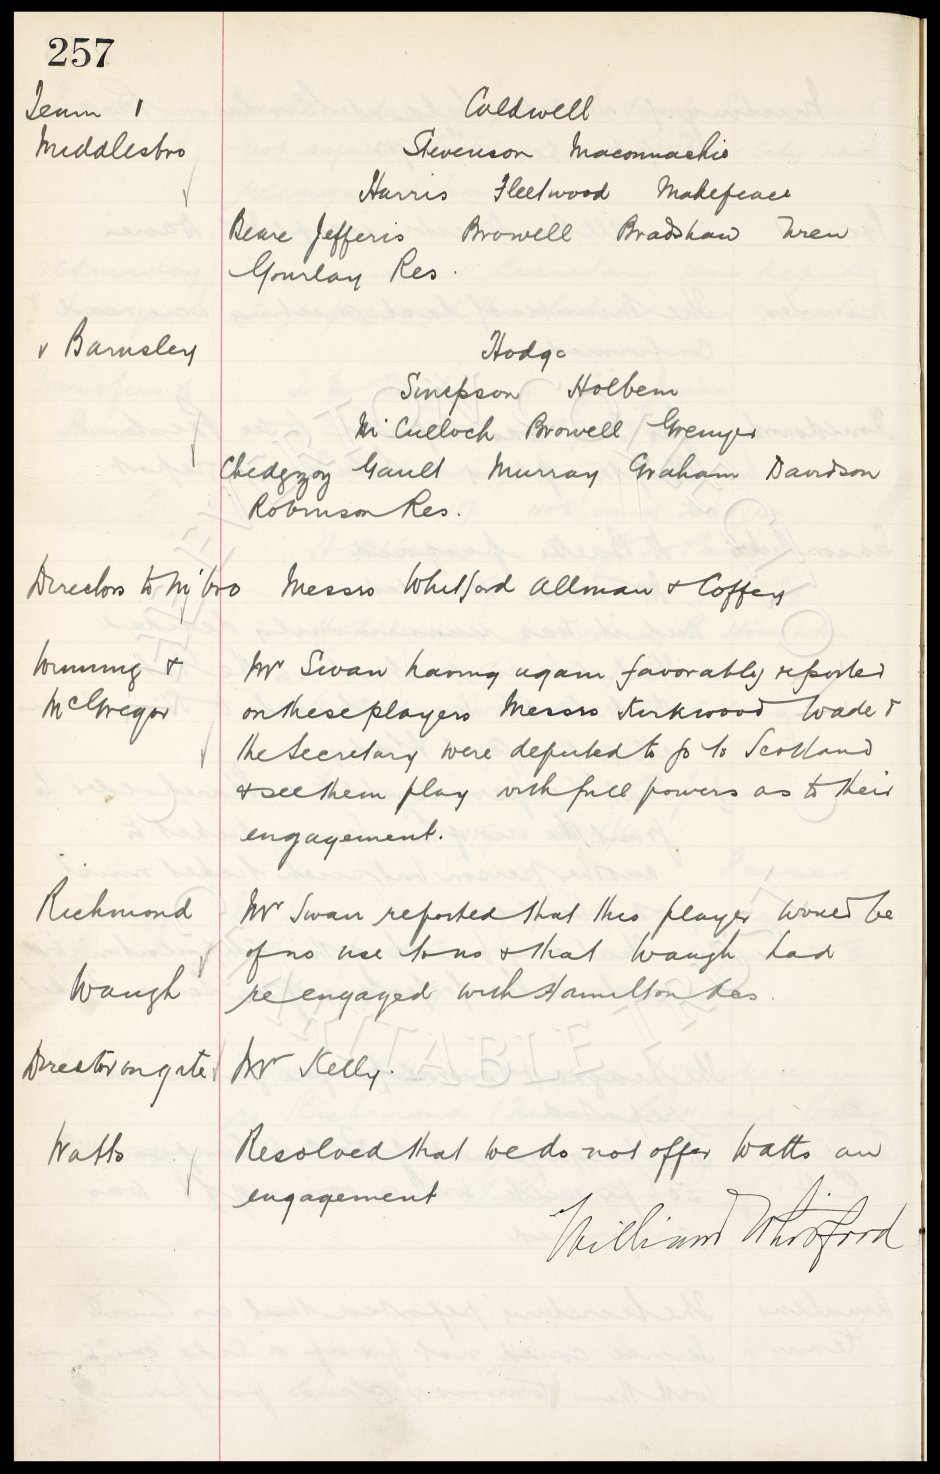 257
Team 1 Caldwell
Middlesbro Stevenson Maconnachie
Harris Fleetwood Makepeace
Beare Jefferis Browell Bradshaw Uren
Gourlay Res.
v Barnsley Hodge
Simpson Holbem
McCulloch Browell Grenyer
Chedgzoy Gault Murray Graham Davidson
Robinson Res.
Directors to M'bro Messrs Whitford Allman & Coffey
Winning & Mr Swan having again favorably reported
McGregor on these players Messrs Kirkwood Wade &
the Secretary were deputed to go to Scotland
& see them play with full powers as to their
engagement.
Richmond Mr Swan reported that this player would be
of no use to us & that Waugh had
Waugh re engaged with Hamilton Acs.
Director on gate Mr Kelly.
Watts Resolved that we do not offer Watts an
engagement
William Whitford